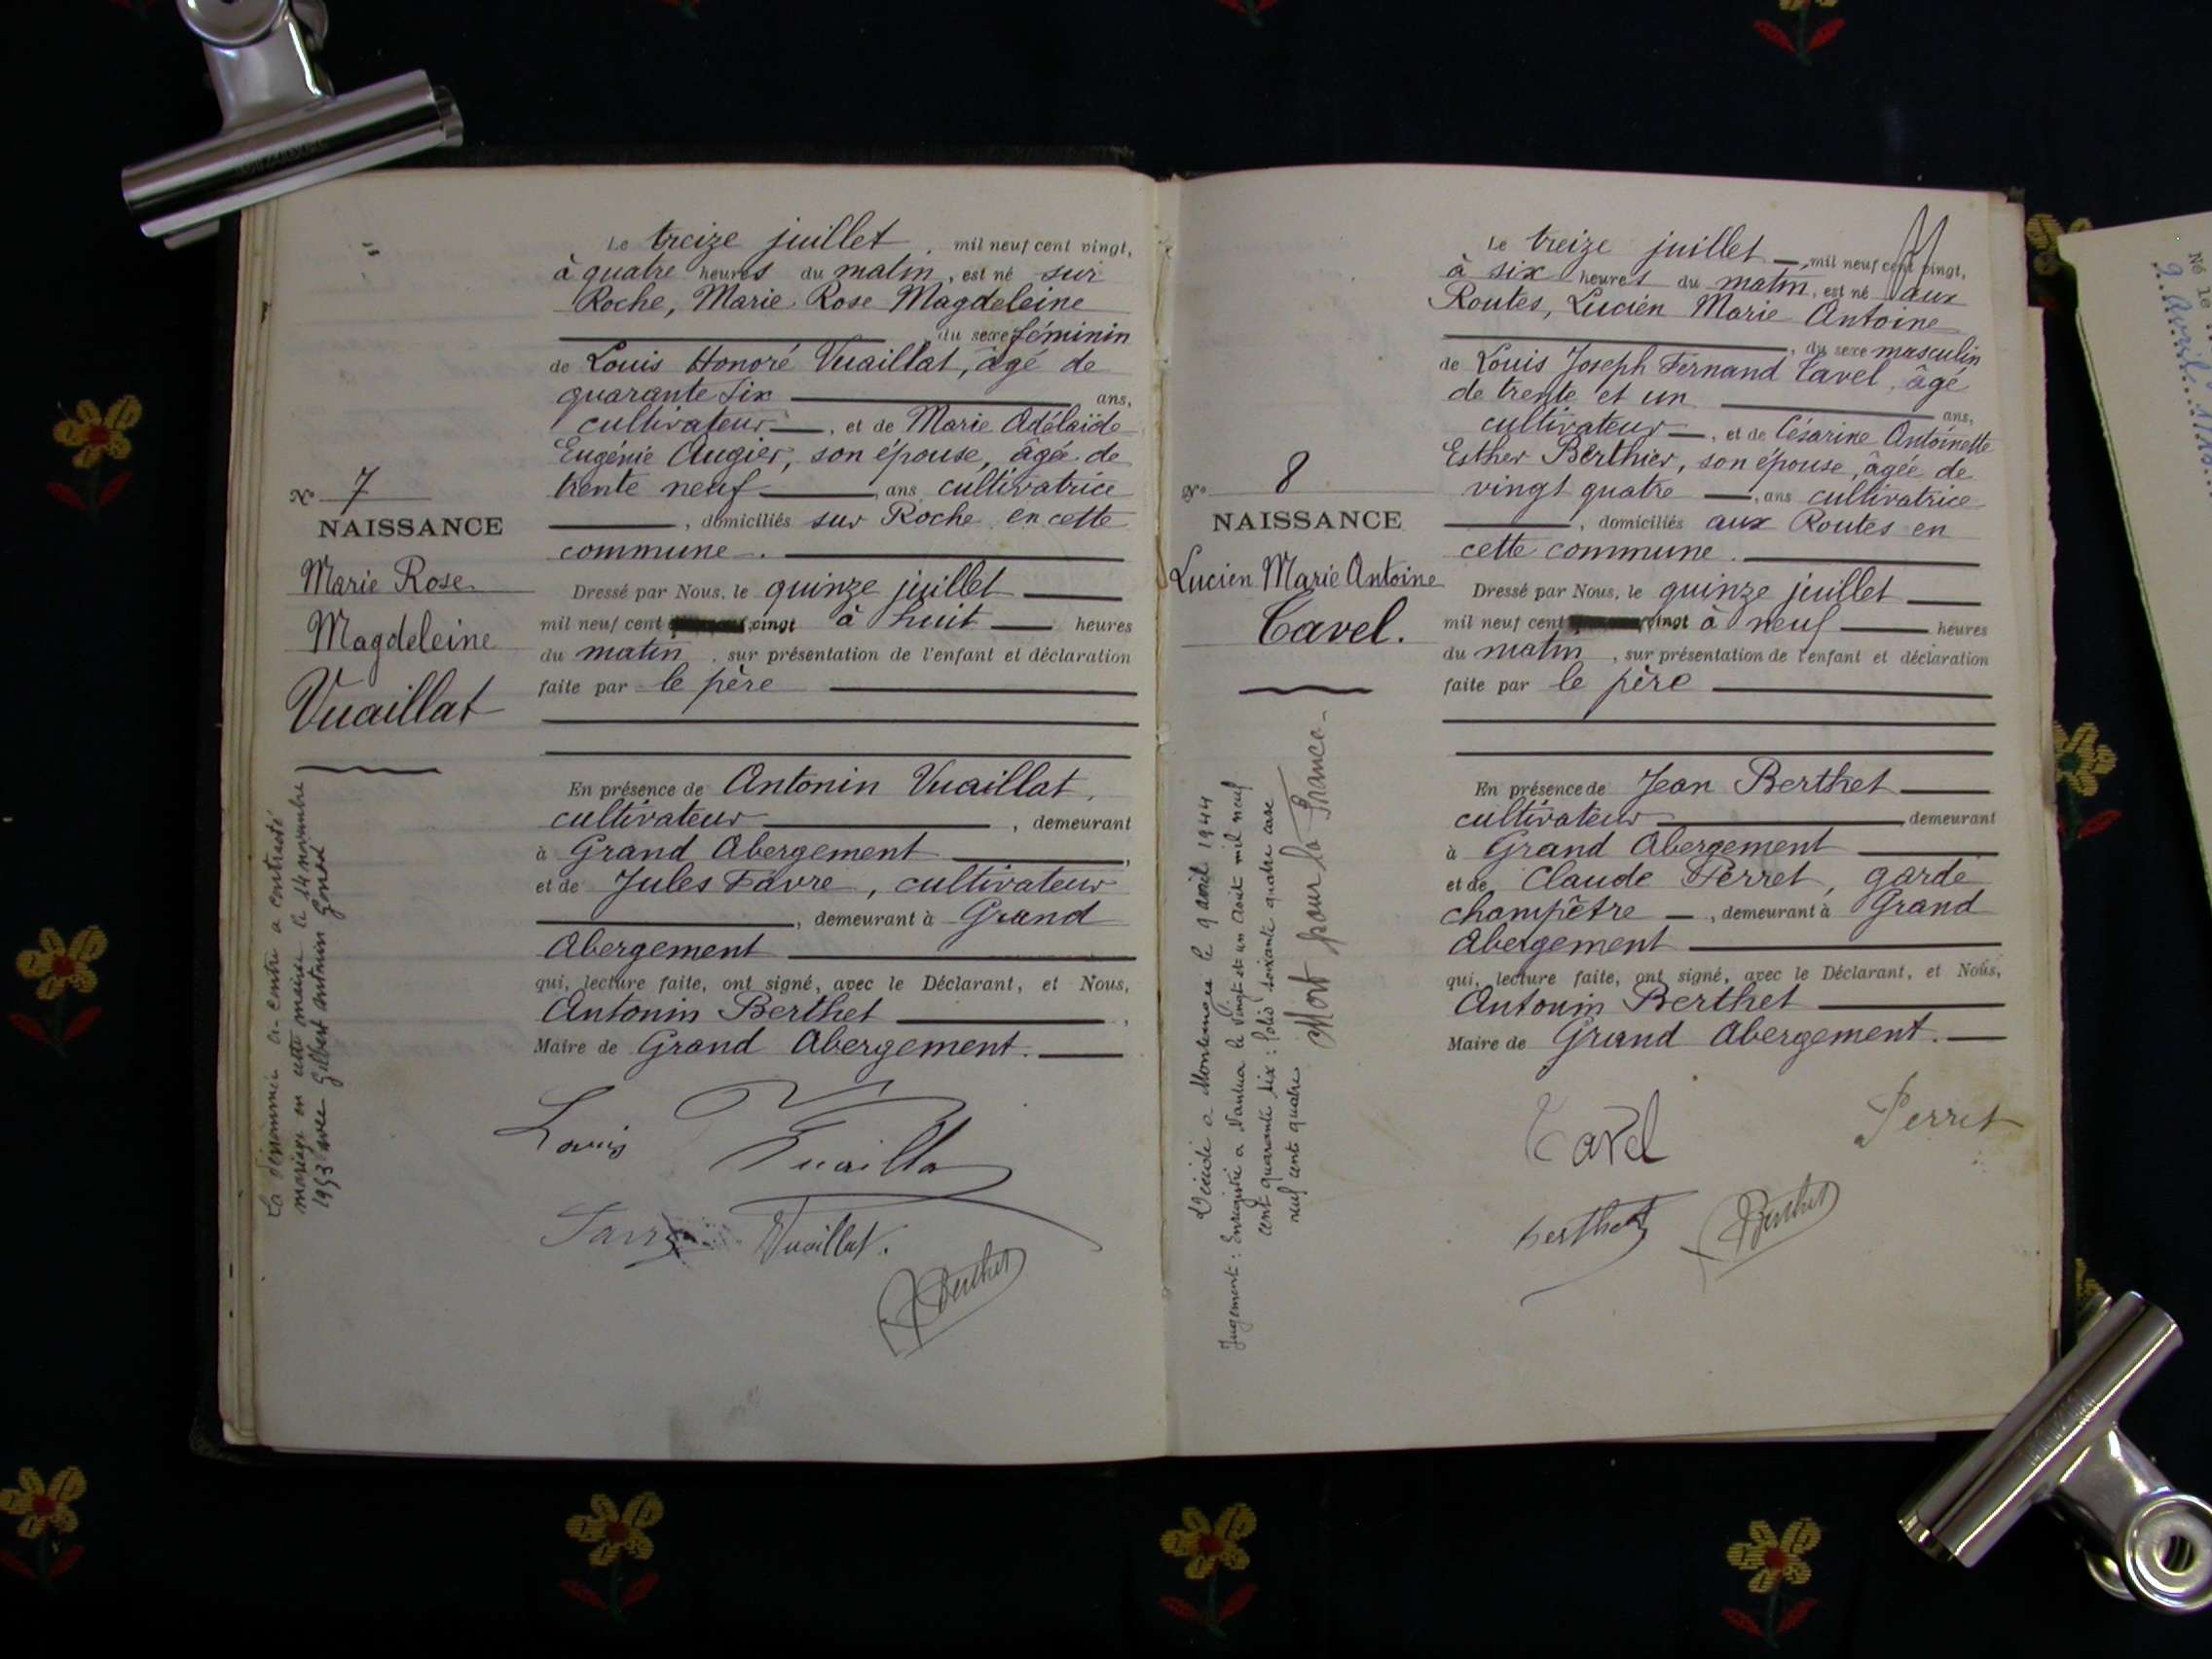 N° 7
NAISSANCE
Marie Rose
Magdeleine
Vuaillat
La dénommée ci-contre a contracté
mariage en cette mairie le 14 novembre
1953 avec Gilbert Antonin Gonet
Le treize juillet, mil neuf cent vingt,
à quatre heures du matin, est né sur
Roche, Marie Rose Magdeleine
, du sexe féminin
de Louis Honoré Vuaillat, âgé de
quarante six ans,
cultivateur, et de Marie Adélaïde
Eugénie Augier, son épouse, âgée de
trente neuf, ans cultivatrice
, domiciliés sur Roche en cette
commune.
Dressé par Nous, le quinze juillet
mil neuf cent vingt à huit heures
du matin, sur présentation de l'enfant et déclaration
faite par le père
En présence de Antonin Vuaillat,
cultivateur, demeurant
à Grand Abergement,
et de Jules Favre, cultivateur
, demeurant à Grand
Abergement
qui, lecture faite, ont signé, avec le Déclarant, et Nous,
Antonin Berthet,
Maire de Grand Abergement.
Louis Vuailla
Favre Vuaillat.
Berthet
N° 8
NAISSANCE
Lucien Marie Antoine
Tavel.
Décédé a Montanges le 9 avril 1944
Jugement : Enregistré a Nantua le vingt et un Août mil neuf
cent quarante six : folio soixante quatre case
neuf cent quatre
Mort pour la France-
Le treize juillet, mil neuf cent vingt,
à six heures du matin, est né aux
Routes, Lucien Marie Antoine
, du sexe masculin
de Louis Joseph Fernand Tavel, âgé
de trente et un ans,
cultivateur, et de Césarine Antoinette
Esther Berthier, son épouse, âgée de
vingt quatre, ans cultivatrice
, domiciliés aux Routes en
cette commune.
Dressé par Nous, le quinze juillet
mil neuf cent vingt à neuf heures
du matin, sur présentation de l'enfant et déclaration
faite par le père
En présence de Jean Berthet
cultivateur, demeurant
à Grand Abergement
et de Claude Perret, garde
champêtre, demeurant à Grand
Abergement
qui, lecture faite, ont signé, avec le Déclarant, et Nous,
Antonin Berthet
Maire de Grand Abergement.
Tavel Perret
berthet Berthet